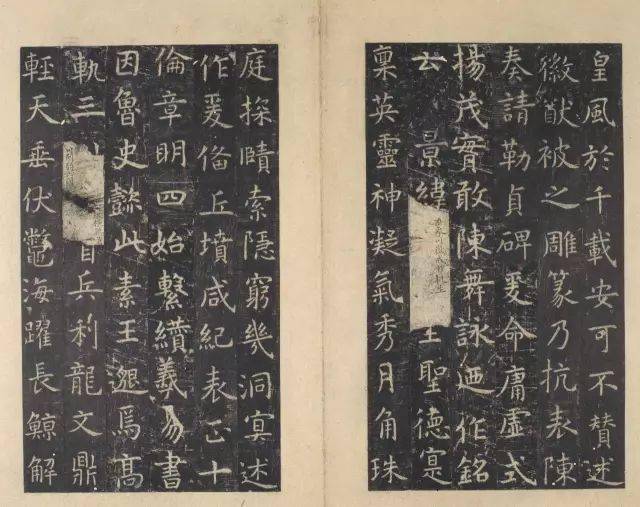 皇風於千載安可不贊述
徽猷被之雕篆乃抗表陳
奏請勒貞碑爰命庸虛式
揚茂實敢陳舞詠迺作銘
云景緯聖德寔
稟英靈神凝氣秀月角珠
庭探賾索隱窮幾洞冥述
作爰俻丘墳咸紀表正十
倫章明四始繫纘羲易書
因魯史懿此素王邈焉高
軌三首兵利龍文鼎
輕天垂伏鼈海躍長鯨解